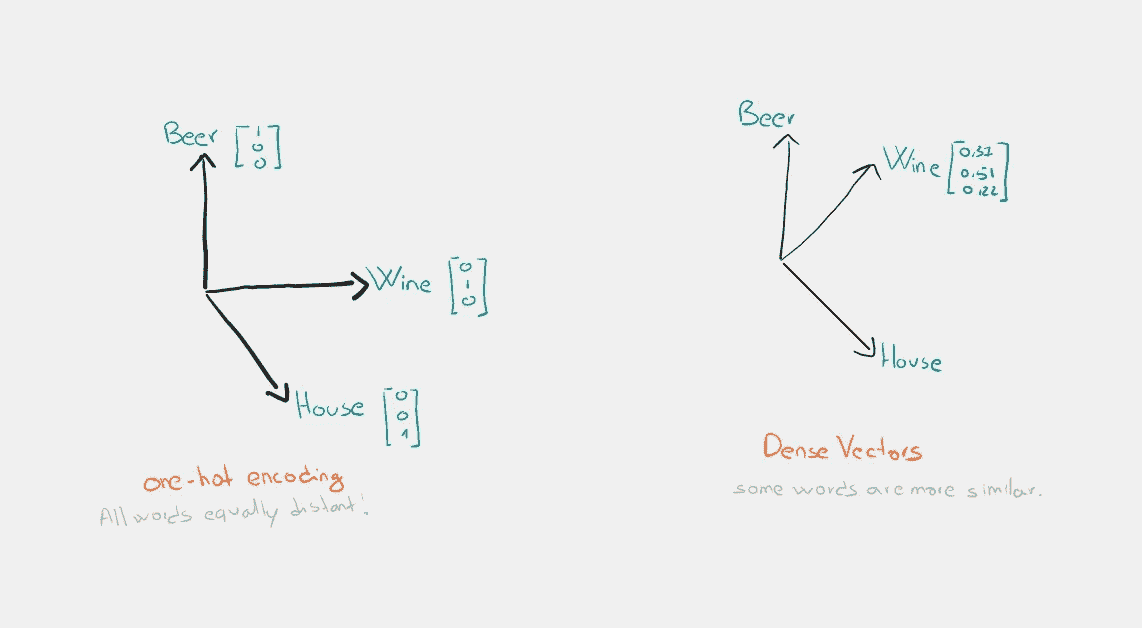 Beer [1 0 0]
Wine [0 1 0]
House [0 0 1]
one-hot encoding
All words equally distant!
Beer
Wine [0.37 0.51 0.22]
House
Dense Vectors
some words are more similar.